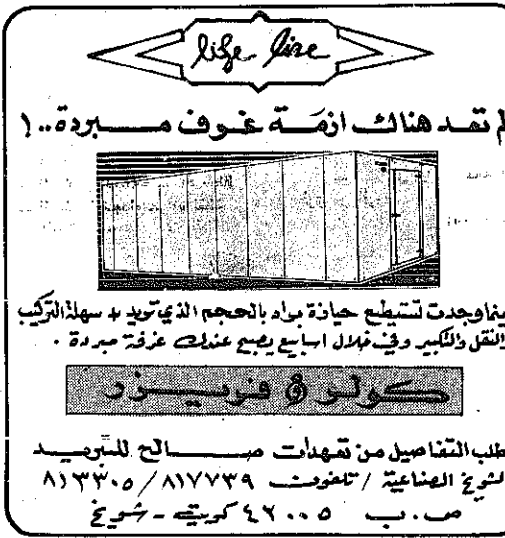 life line
لم تعد هناك ازمة غرف مبردة..!
اينما وجدت تستطيع حيازة براد بالحجم الذي تريد + سهلة التركيب
والنقل والتكبير وفي خلال اسابيع يصبح عندك غرفة مبردة .
كولر فريزر
طلب التفاصيل من تعهدات صالح للتبريد
الشويخ الصناعية / تلفون ٨١٧٧٣٩ / ٨١٣٣٠٥
ص . ب ٤٢٠٠٥ كويت - شويخ